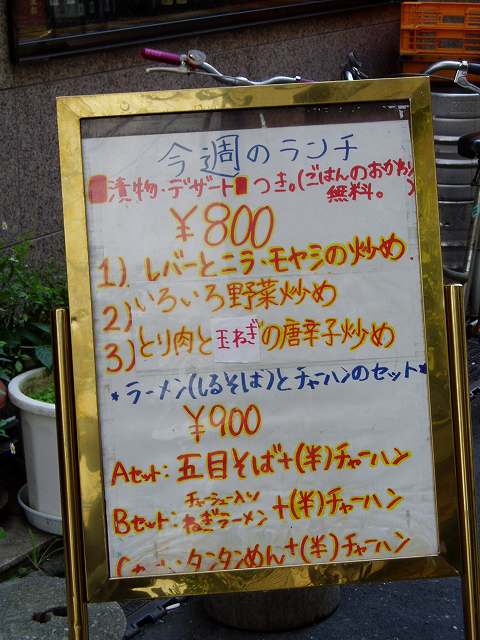 今週のランチ
漬物・デザートつき。(ごはんのおかわり無料。)
¥800
1) レバーとニラ・モヤシの炒め
2) いろいろ野菜炒め
3) とり肉と玉ねぎの唐辛子炒め
*ラーメン(しるそば)とチャーハンのセット*
¥900
Aセット: 五目そば+(半)チャーハン
Bセット: チャーシュー入りねぎラーメン+(半)チャーハン
タンタンめん+(半)チャーハン